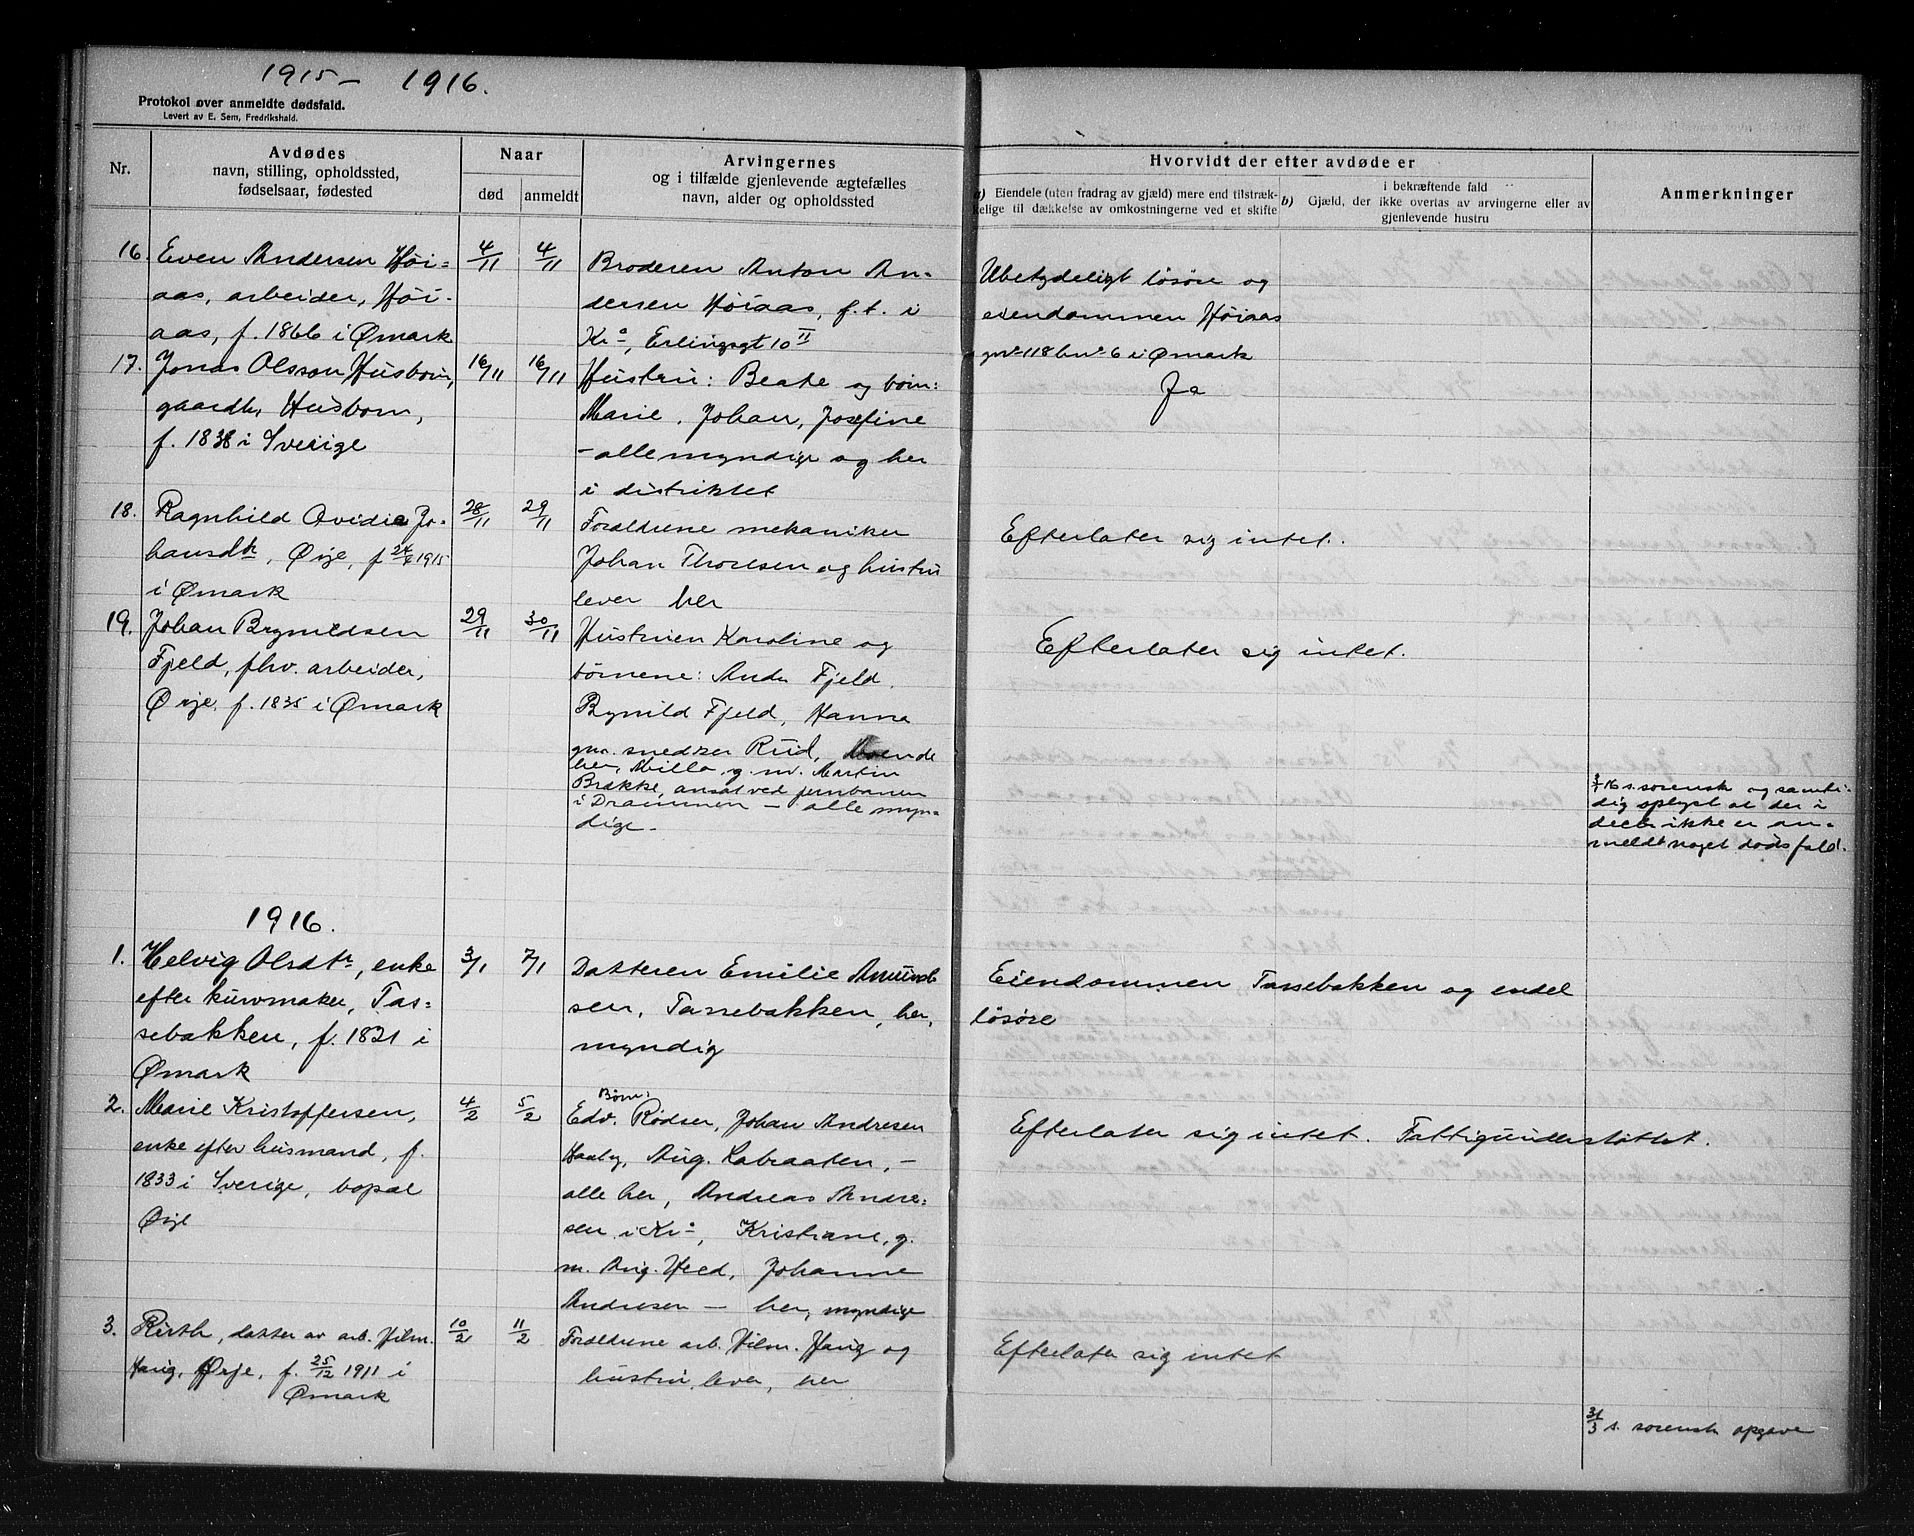 1915 – 1916.
Protokol over anmeldte dødsfald.
Levert av E. Sem, Fredrikshald.
Nr.
Avdødes
navn, stilling, opholdssted,
fødselsaar, fødested
Naar
død
anmeldt
Arvingernes
og i tilfælde gjenlevende ægtefælles
navn, alder og opholdssted
Hvorvidt der efter avdøde er
a) Eiendele (uten fradrag av gjæld) mere end tilstræk-
kelige til dækkelse av omkostningerne ved et skifte
i bekræftende fald
b) Gjæld, der ikke overtas av arvingerne eller av
gjenlevende hustru
Anmerkninger
16. Even Andersen Høi=
aas, arbeider, Høi-
aas, f. 1866 i Ømark
4/11
4/11
Broderen Anton An-
dersen Høiaas, f.t. i
Kr.a, Erlingsgt 10 II
Ubetydeligt løsøre og
eiendommen Høiaas
gnr 118 bnr 6 i Ømark
17. Jonas Olsson Husborn,
gaardbr, Husborn,
f. 1838 i Sverige
16/11
16/11
Hustru: Beate og børn:
Marie, Johan, Josefine
– alle myndige og her
i distriktet
Ja
18. Ragnhild Ovidia Jo-
hansdtr, Ørje, f 24/6 1915
i Ømark
28/11
29/11
Forældrene mekaniker
Johan Thoresen og hustru
lever her
Efterlater sig intet.
19. Johan Brynildsen
Fjeld, fhv. arbeider,
Ørje, f. 1835 i Ømark
29/11
30/11
Hustruen Karoline og
børnene: Andr Fjeld,
Brynild Fjeld, Hanna
gm. snedker Rud,
her, Milla g. m. Martin
Brække, ansat ved jernbanen
i Drammen – alle myn-
dige.
Efterlater sig intet.
3/1 16 s. sorensk og samti-
dig oplyst at der i
decbr ikke er an-
meldt noget dødsfald.
1916.
1. Helvig Olsdtr, enke
efter kurvmaker, Tas-
sebakken, f. 1821 i
Ømark
3/1
7/1
Datteren Emilie Amund-
sen, Tassebakken, her,
myndig
Eiendommen Tassebakken og endel
løsøre
2. Marie Kristoffersen,
enke efter husmand, f.
1833 i Sverige, bopæl
Ørje
4/2
5/2
Børn:
Edv. Rødser, Johan Andresen
Aug. Labraaten, –
alle her, Andreas Andre-
sen i Kr.a, Kristiane, g.
m. Aug. Hed, Johanne
Andresen – her, myndige
Efterlater sig intet. Fattigunderstøttet.
3. Ruth, datter av arb. Hilm.
Haug, Ørje, f. 25/12 1911 i
Ømark
10/2
11/2
Forældrene arb. Hilm. Haug og
hustru, lever, her
Efterlater sig intet
31/3 s. sorensk opgave